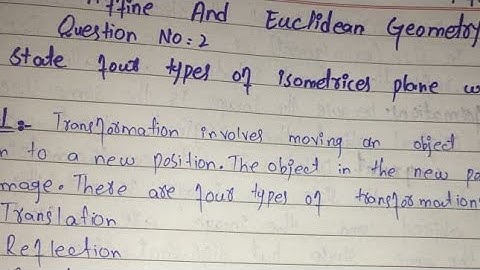 ffine And Euclidean Geometry
Question No:2
state four types of isometrices plane w
1:- Transformation involves moving an object
n to a new position. The object in the new po
mage. There are four types of transformation
Translation
Reflection